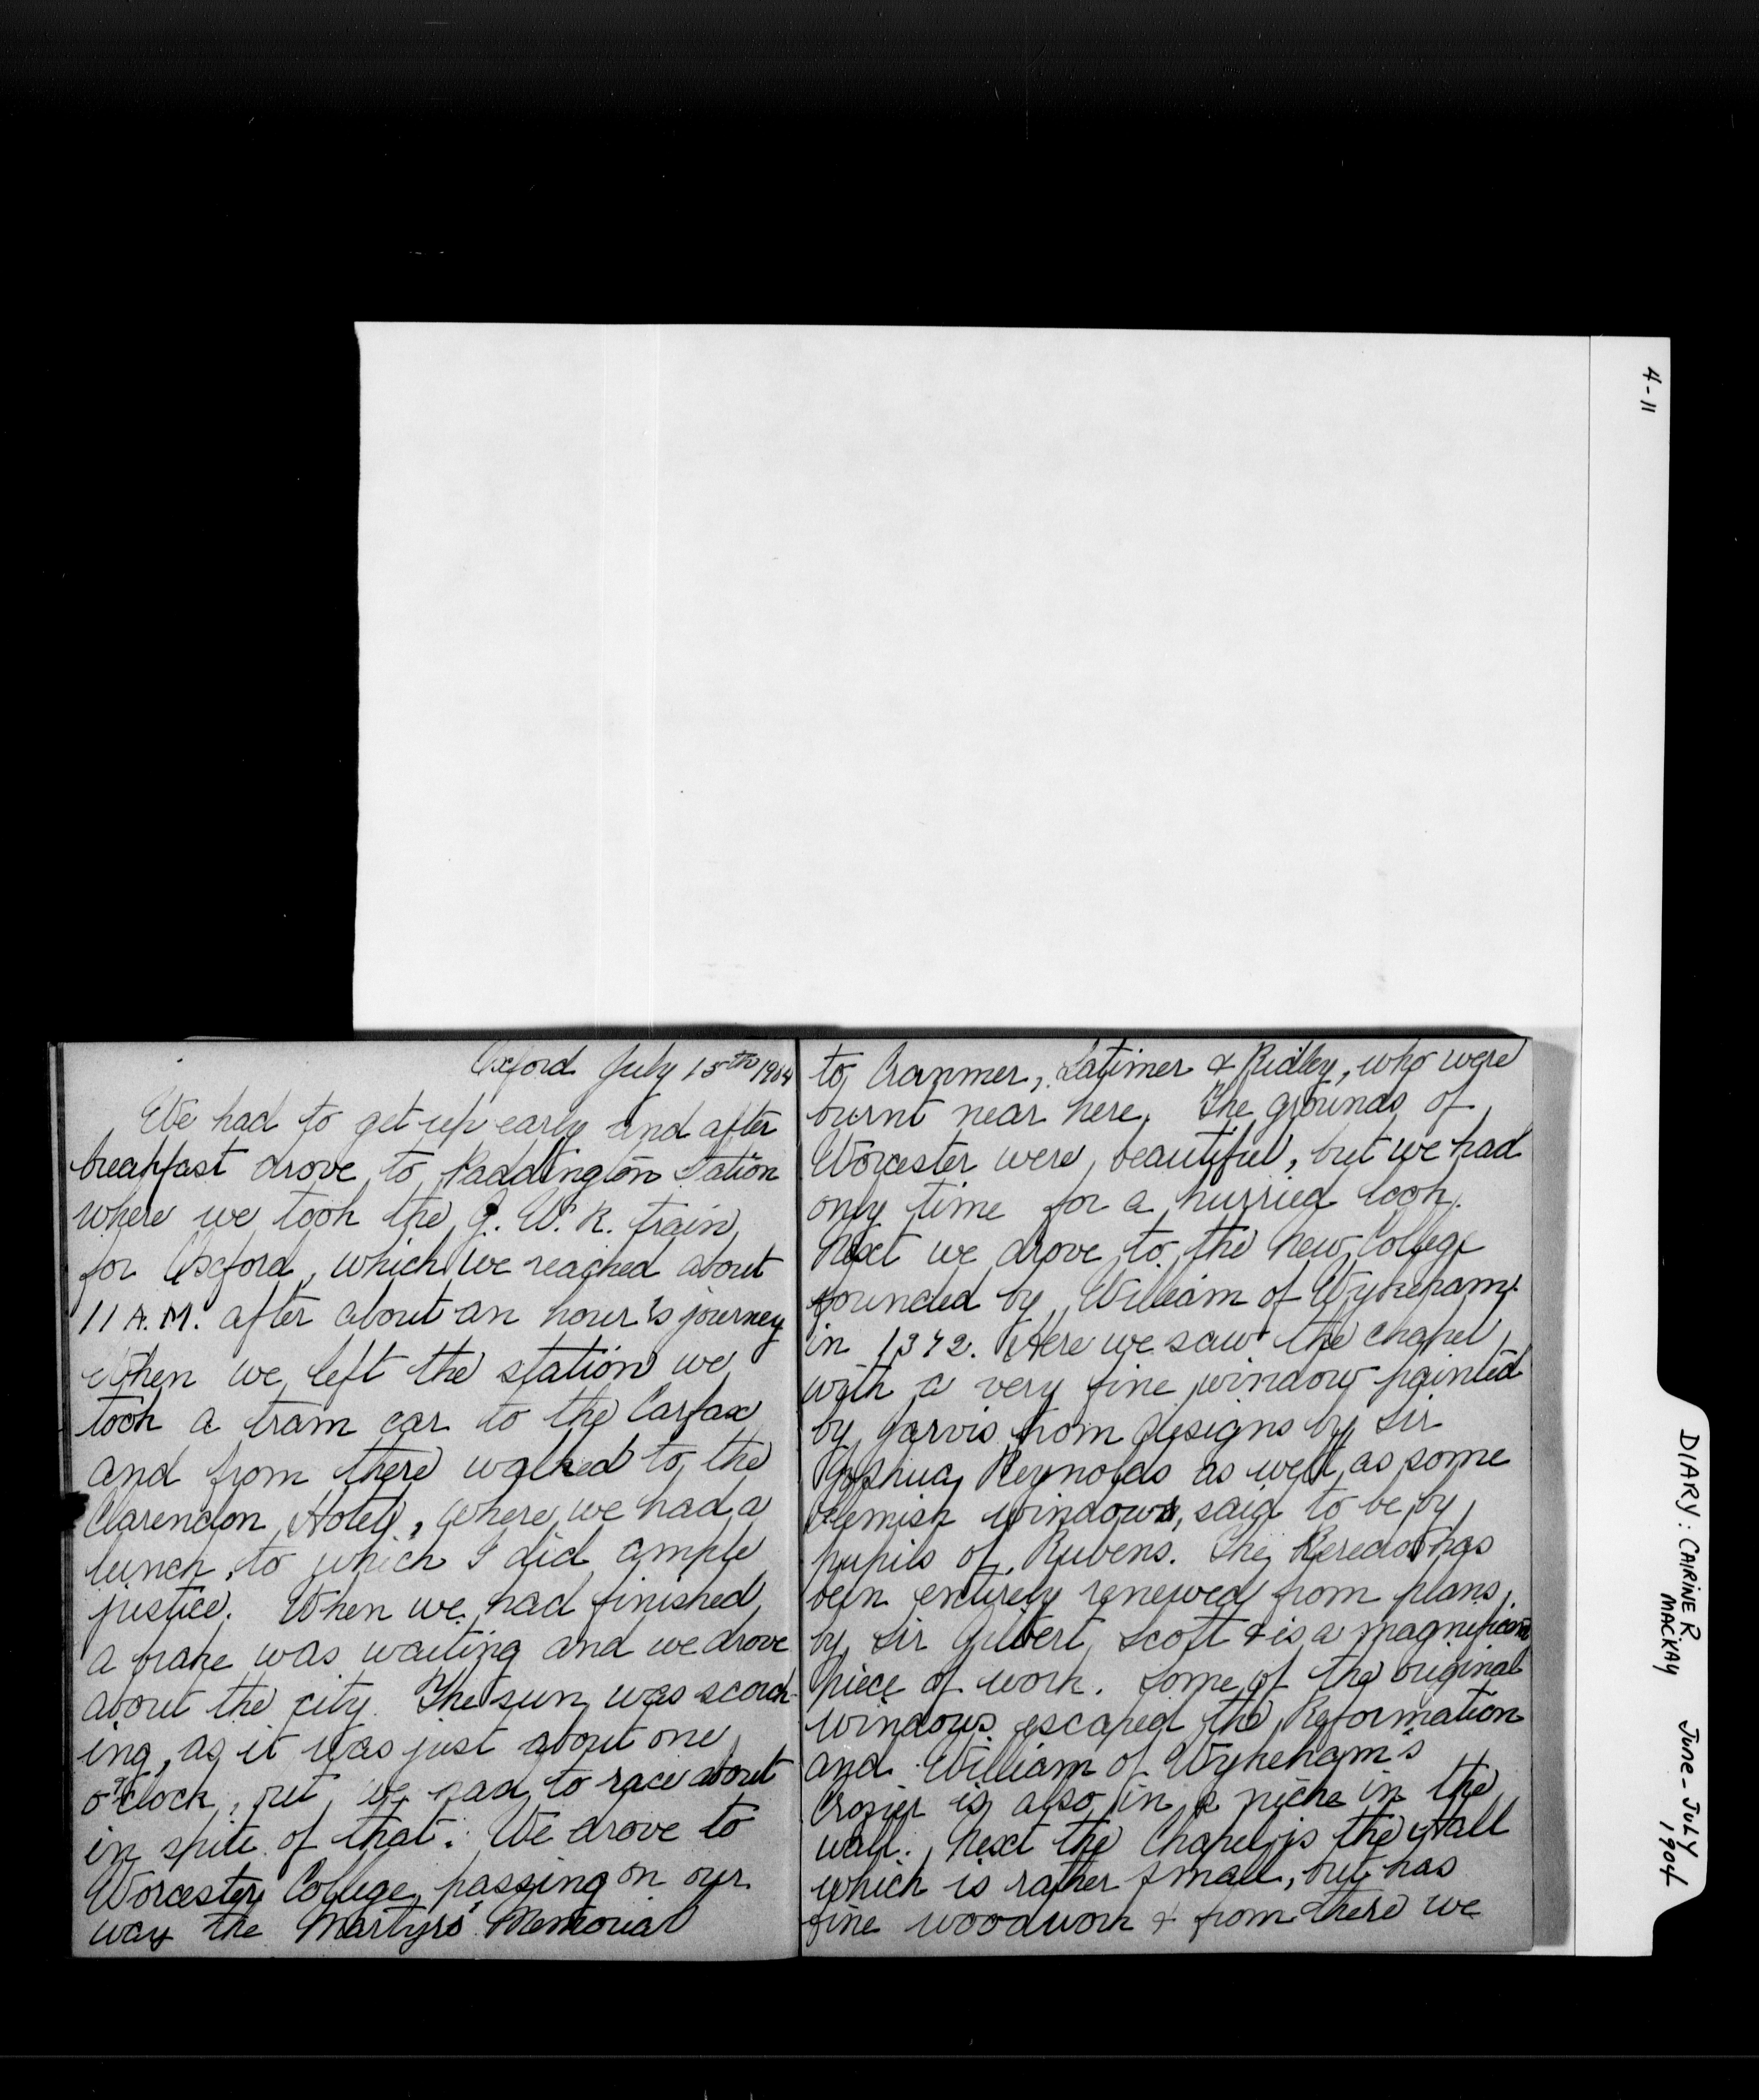 Oxford July 15th 1904
We had to get up early and after
breakfast drove to Paddington Station
where we took the G. W. R. train
for Oxford, which we reached about
11 A.M. after about an hour's journey
When we left the station we
took a tram car to the Carfax
and from there walked to the
Clarendon Hotel, where we had a
lunch, to which I did ample
justice. When we had finished,
a brake was waiting and we drove
about the city. The sun was scorch-
ing, as it was just about one
o'clock, but we had to race about
in spite of that. We drove to
Worcester College, passing on our
way the Martyrs' Memorial
to Cranmer, Latimer & Ridley, who were
burnt near here. The grounds of
Worcester were beautiful, but we had
only time for a hurried look.
Next we drove to the New College
founded by William of Wykeham
in 1372. Here we saw the chapel
with a very fine window painted
by Jarvis from designs by Sir
Joshua Reynolds as well as some
Flemish windows, said to be by
pupils of Rubens. The Reredos has
been entirely renewed from plans
by Sir Gilbert Scott & is a magnificent
piece of work. Some of the original
windows escaped the Reformation
and William of Wykeham's
Crozier is also in a niche in the
wall. Next the Chapel is the Hall
which is rather small, but has
fine woodwork & from there we
4-11
DIARY: CAIRINE R
MACKAY
JUNE-JULY
1904